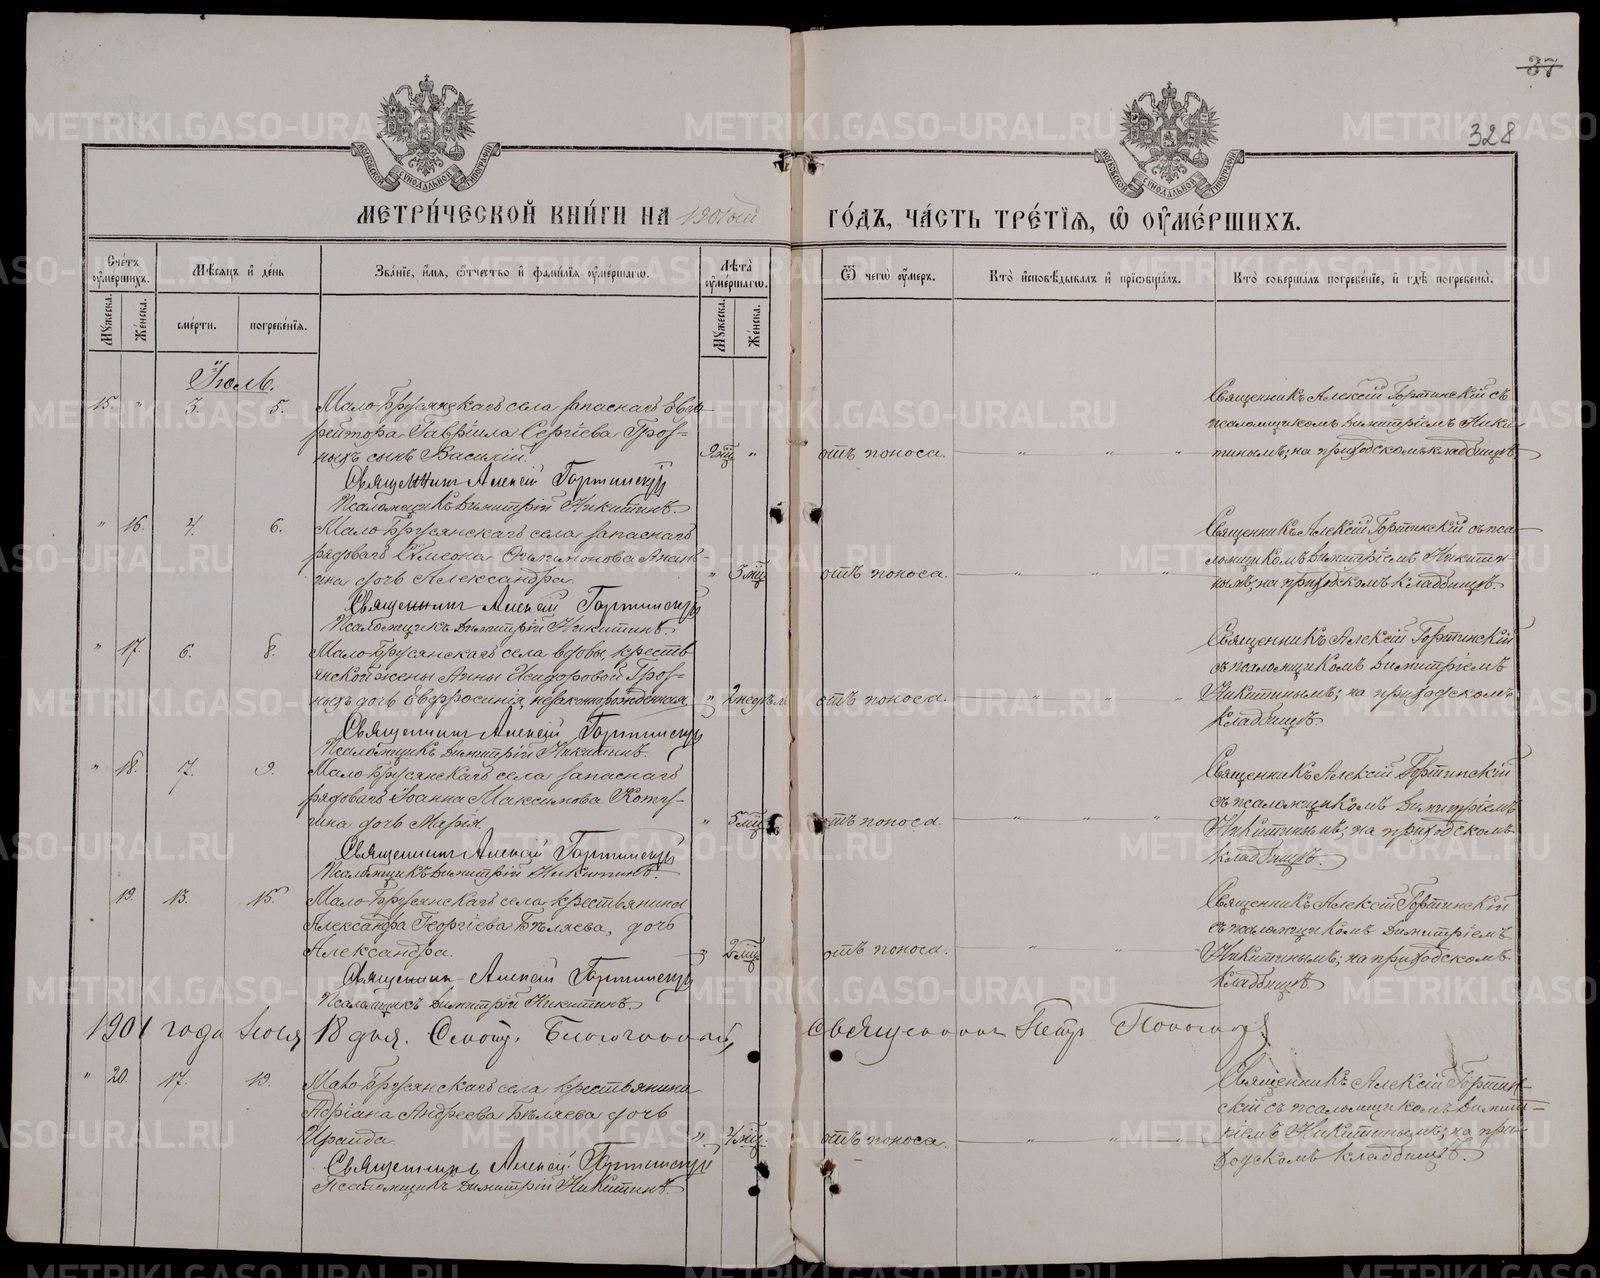 37
328
МЕТРИЧЕСКОЙ КНИГИ НА 1901ый ГОДЪ, ЧАСТЬ ТРЕТІЯ, Ѡ ОУМЕРШИХЪ.
Счетъ оумершихъ.
Мужеска.
Женска.
Мѣсяцъ и день
смерти.
погребенія.
Званіе, имя, отчество и фамилія оумершаго.
Лѣта оумершаго.
Мужеска.
Женска.
Ѿ чего оумеръ.
Кто исповѣдывалъ и пріобщалъ.
Кто совершалъ погребеніе, и гдѣ погребены.
Іюль.
15. " 3. 5. Мало-Брусянскаго села запаснаго Ефрейтора Гавріила Сергіева Гроз=
ныхъ сынъ Василій. 9 мц " отъ поноса. " " "
Священникъ Алексій Гортинскій съ
псаломщикомъ Димитріемъ Ники
тинымъ; на приходскомъ кладбищѣ.
Священникъ Алексій Гортинскій
Псаломщикъ Димитрій Никитинъ.
" 16. 4. 6. Мало-Брусянскаго села запаснаго
рядоваго Сѵмеона
дочь Александра. " 3 мц отъ поноса. " " "
Священникъ Алексій Гортинскій съ пса
ломщикомъ Димитріемъ Никити
нымъ; на приходскомъ кладбищѣ.
Священникъ Алексій Гортинскій
Псаломщикъ Димитрій Никитинъ.
" 17. 6. 8. Мало-Брусянскаго села вдовы крестьянской жены Анны Исидоровой Гроз=
ныхъ дочь Евфросинія, незаконнорожденная " 2 недѣли отъ поноса. " " "
Священникъ Алексій Гортинскій
съ псаломщикомъ Димитріемъ
Никитинымъ; на приходскомъ
кладбищѣ
Священникъ Алексій Гортинскій
Псаломщикъ Димитрій Никитинъ.
" 18. 7. 9. Мало-Брусянскаго села запаснаго
рядоваго Іоанна Максимова
дочь Марія. " 5 мц отъ поноса. " " "
Священникъ Алексій Гортинскій
съ псаломщикомъ Димитріемъ
Никитинымъ; на приходскомъ
кладбищѣ.
Священникъ Алексій Гортинскій
Псаломщикъ Димитрій Никитинъ.
19. 13. 15. Мало-Брусянскаго села крестьянина
Александра Георгіева Бѣляева, дочь
Александра. " 2 мц отъ поноса. " " "
Священникъ Алексій Гортинскій
съ псаломщикомъ Димитріемъ
Никитинымъ; на приходскомъ
кладбищѣ.
Священникъ Алексій Гортинскій
Псаломщикъ Димитрій Никитинъ.
1901 года Іюля 18 дня. Смотр. Благочинный, Священникъ Петръ
" 20. 17. 19. Мало-Брусянскаго села крестьянина
Адріана Андреева Бѣляева дочь
Ираида. " мц отъ поноса. " " "
Священникъ Алексій Гортин=
скій съ псаломщикомъ Димит=
ріемъ Никитинымъ; на при=
ходскомъ кладбищѣ.
Священникъ Алексій Гортинскій
Псаломщикъ Димитрій Никитинъ.
METRIKI.GASO-URAL.RU